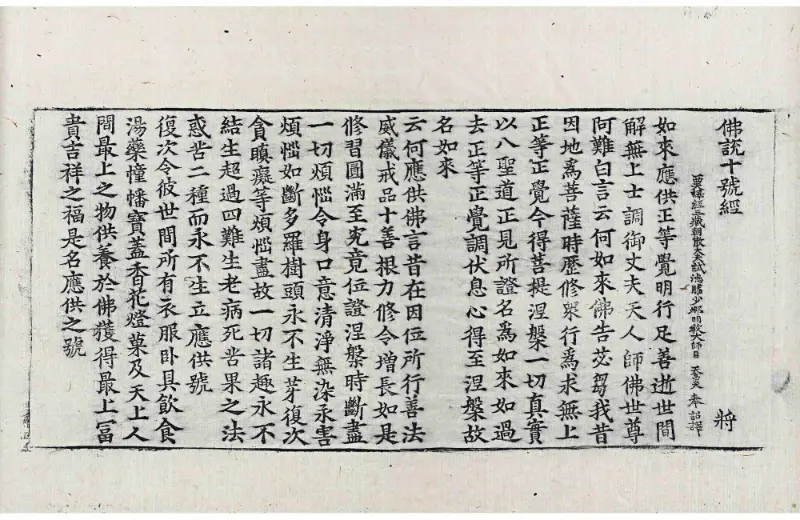 佛説十號經 將
譯經三藏朝散大夫試鴻臚少卿明教大師臣 奉 詔譯
如來應供正等覺明行足善逝世間
解無上士調御丈夫天人師佛世尊
阿難白言云何如來佛告苾芻我昔
因地爲菩薩時歷修衆行爲求無上
正等正覺今得菩提涅槃一切真實
以八聖道正見所證名爲如來如過
去正等正覺調伏息心得至涅槃故
名如來
云何應供佛言昔在因位所行善法
威儀戒品十善根力修令增長如是
修習圓滿至究竟位證涅槃時斷盡
一切煩惱令身口意清淨無染永害
煩惱如斷多羅樹頭永不生芽復次
貪瞋癡等煩惱盡故一切諸趣永不
結生超過四難生老病死苦果之法
惑苦二種而永不生立應供號
復次令彼世間所有衣服卧具飲食
湯藥幢幡寶蓋香花燈菓及天上人
間最上之物供養於佛獲得最上冨
貴吉祥之福是名應供之號